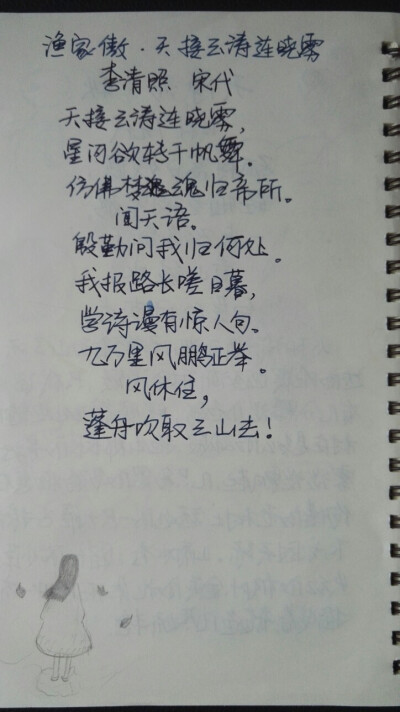 渔家傲·天接云涛连晓雾
李清照 宋代
天接云涛连晓雾，
星河欲转千帆舞。
仿佛梦魂归帝所。
闻天语。
殷勤问我归何处。
我报路长嗟日暮，
学诗谩有惊人句。
九万里风鹏正举。
风休住，
蓬舟吹取三山去！